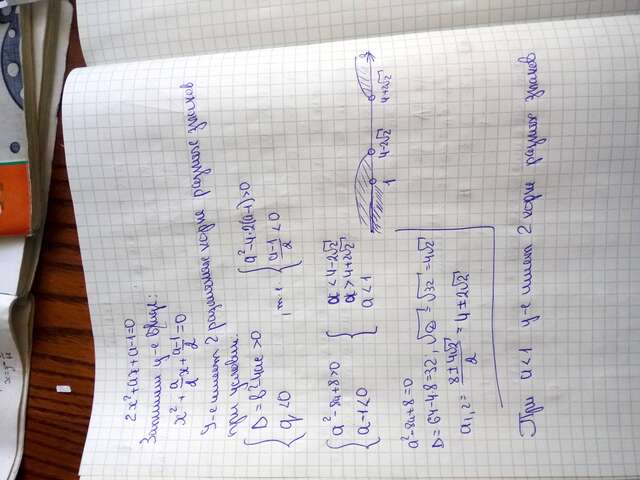 2x²+ax+a-1=0
Запишем у-е в виде:
x²+a/2x+(a-1)/2=0
У-е имеет 2 различных корня разных знаков
при условии:
{ D=b²-4ac>0
q<0 , т.е { a²-4·2(a-1)>0
(a-1)/2<0
{ a²-8a+8>0
a-1<0
{ a<4-2√2
a>4+2√2
a<1
1 4-2√2 4+2√2
a²-8a+8=0
D=64-4·8=32, √D=√32=4√2
a₁,₂=(8±4√2)/2=4±2√2
При a<1 у-е имеет 2 корня разных знаков